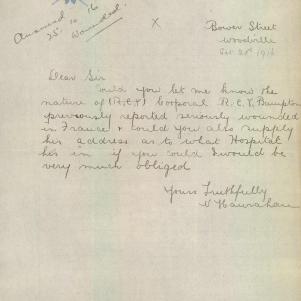 Answered
25.10.16
Wounded.
X
Bower Street
Woodville
Oct 21st 1916
Dear Sir
Could you let me know the
nature of (R.E.Y) Corporal R.E.Y. Bumpton
previously reported seriously wounded
in France & could you also supply
his address as to what Hospital
his in if you could I would be
very much obliged
Yours Truthfully
V Hanrahan